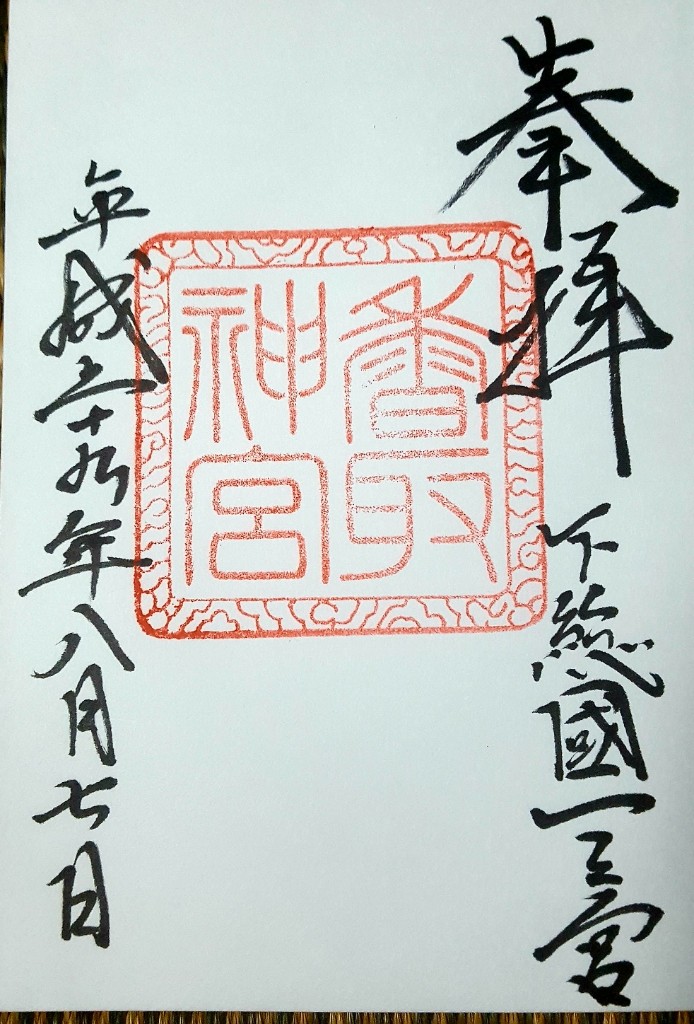 奉拝
下総國一之宮
香取
神宮
平成二十九年八月七日